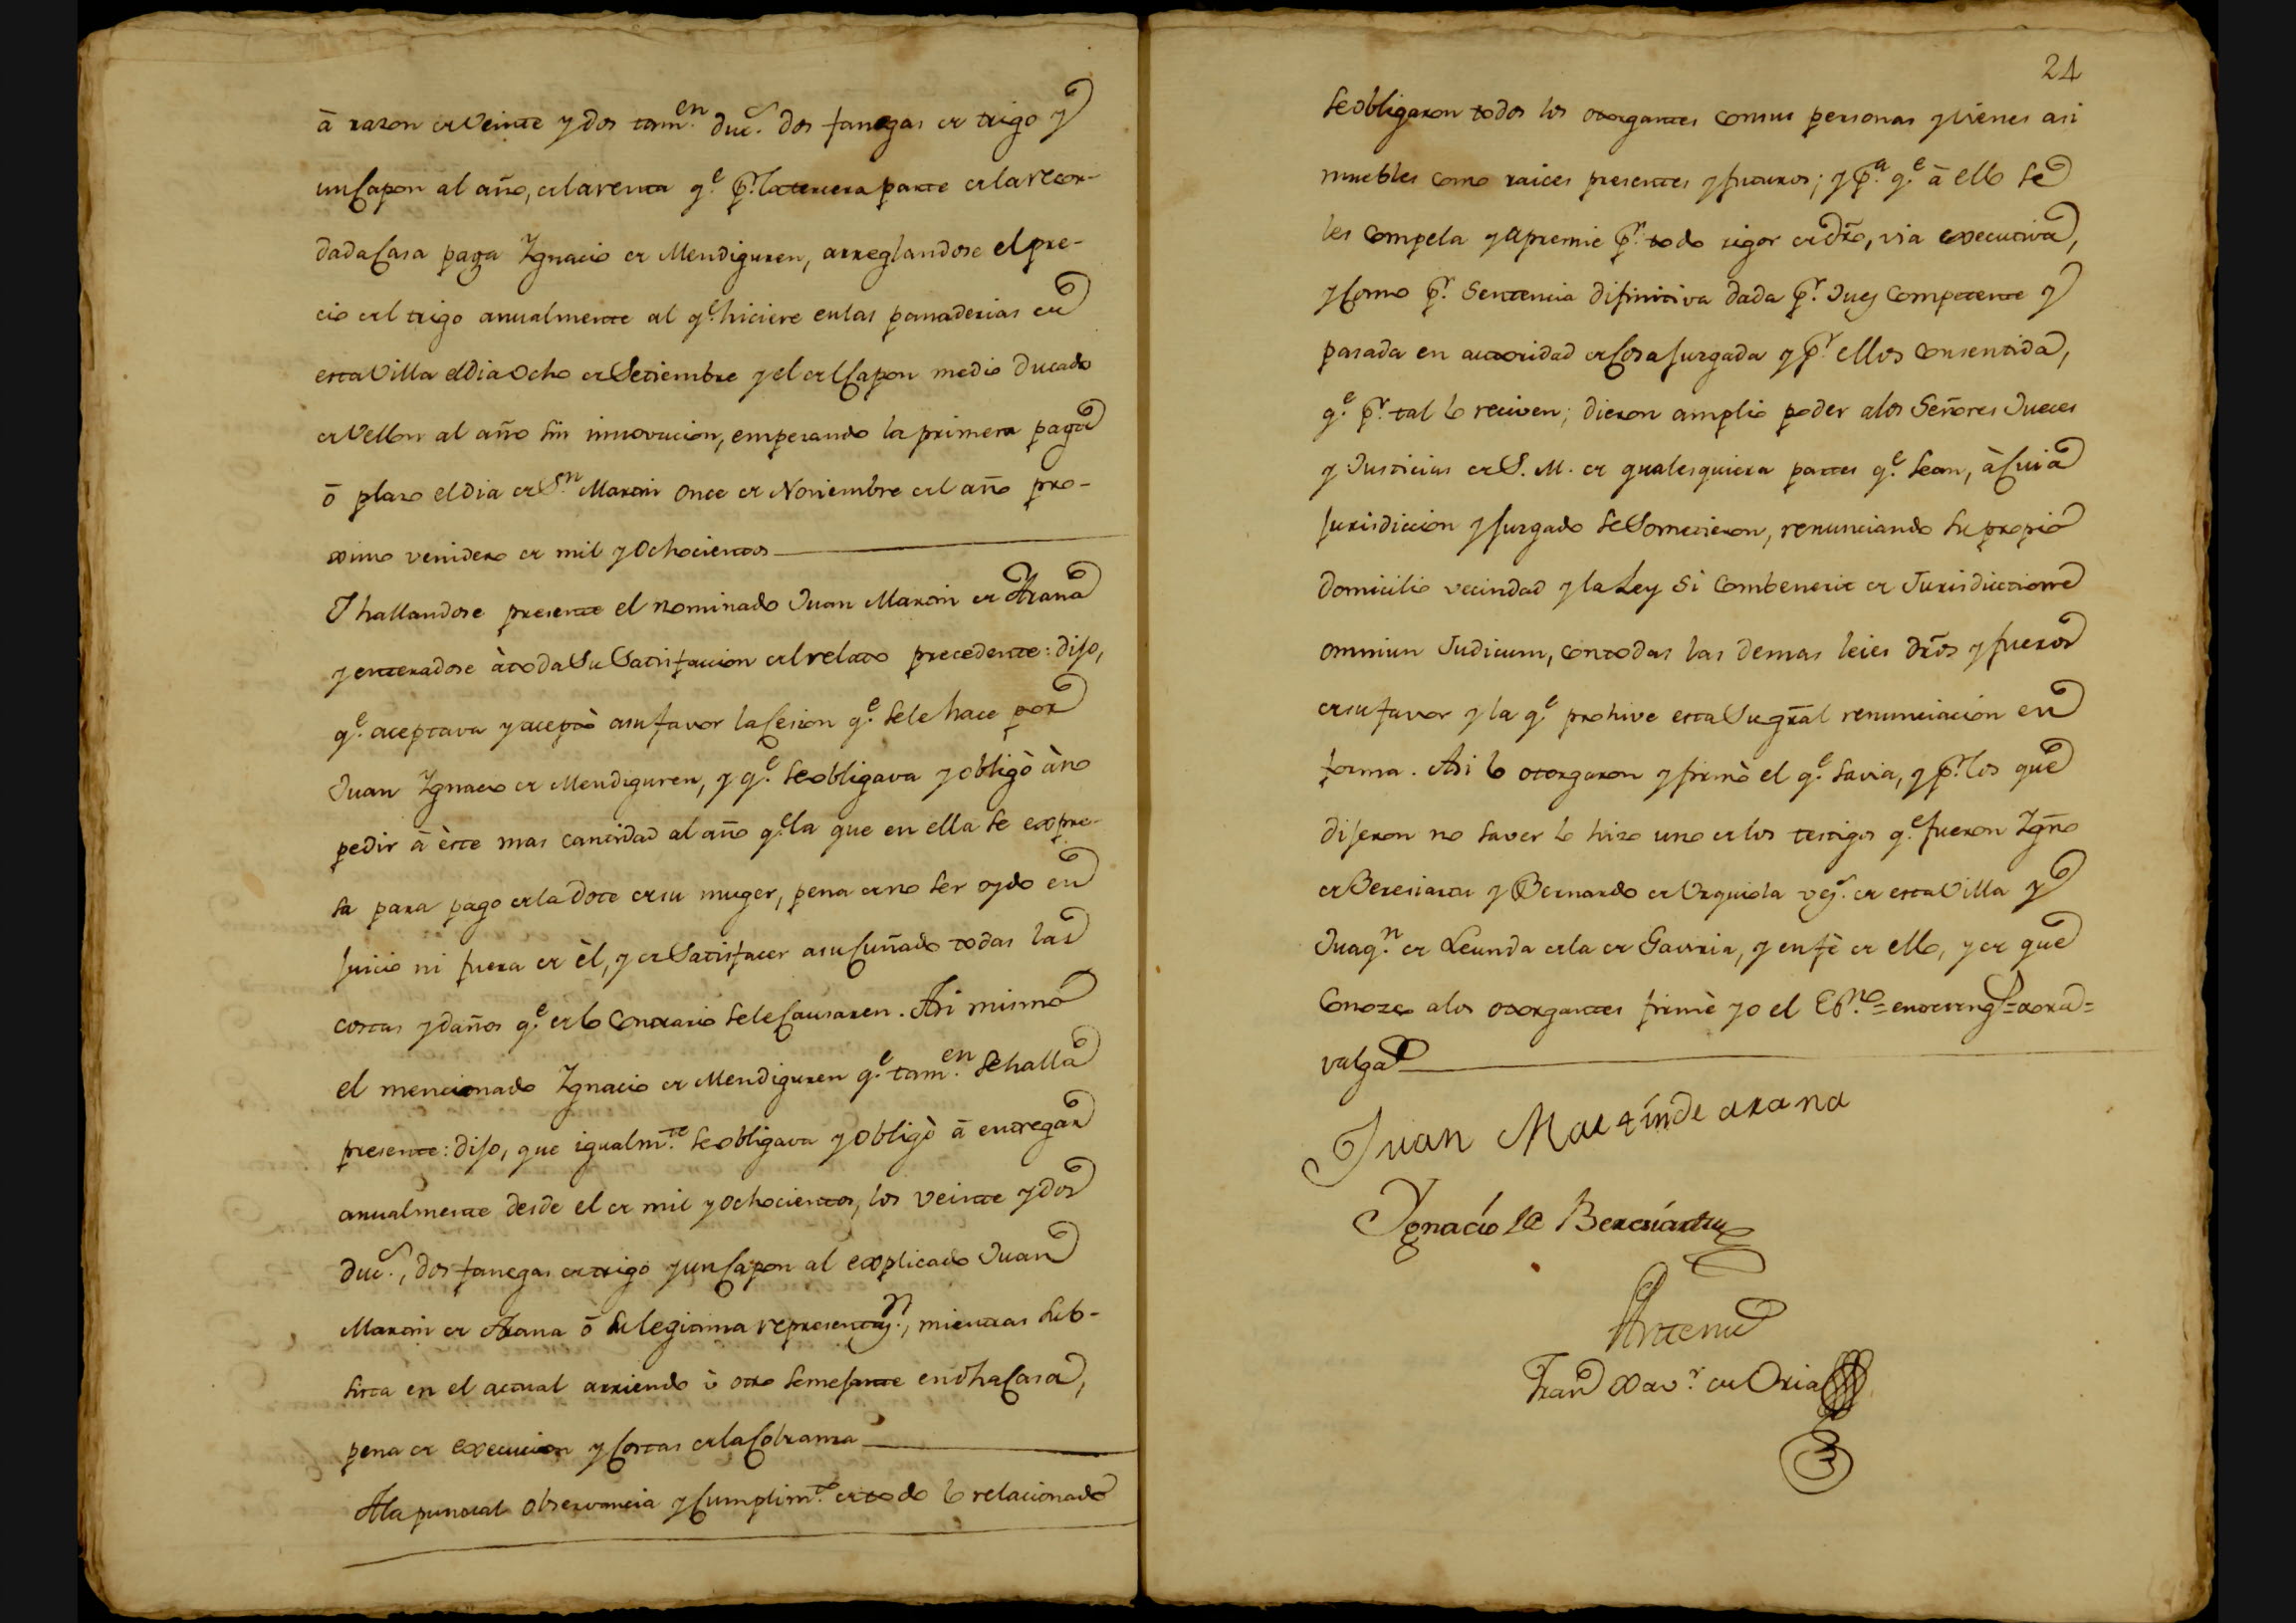 â razon de Veinte y dos tam.en duc.s dos fanegas de trigo y
un Capon al año, de la renta q.e p.r la tercera parte de la recor-
dada Casa paga Ygnacio de Mendiguren, arreglandose el pre-
cio del trigo anualmente al q.e hiciere en las panaderias de
esta Villa el dia Ocho de Setiembre y el del Capon medio ducado
de Vellon al año sin innovacion, empezando la primera paga
ô plazo el dia de S.n Martin once de Noviembre del año pro-
ximo venidero de mil y Ochocientos
Y hallandose presente el nominado Juan Martin de Arana
y enteradose à toda Su Satisfaccion del relato precedente: dijo,
q.e aceptava y aceptò a su favor la Cesion q.e se le hace por
Juan Ygnacio de Mendiguren, y q.e se obligava y obligò à no
pedir â èste mas cantidad al año q.e la que en ella se expre-
sa para pago de la dote de su muger, pena de no ser oydo en
Juicio ni fuera de èl, y de Satisfacer a su Cuñado todas las
costas y daños q.e de lo Contrario se le Causaren. Asi mismo
el mencionado Ygnacio de Mendiguren q.e tam.en se halla
presente: dijo, que igualm.te se obligava y Obligò â entregar
anualmente desde el de mil y Ochocientos, los veinte y dos
duc.s, dos fanegas de trigo y un Capon al explicado Juan
Martin de Arana ô su legitima representaz.n, mientras sub-
sista en el actual arriendo ù otro semejante en dha Casa,
pena de execucion y Costas de la Cobranza
A la puntual Observancia y Cumplim.to de todo lo relacionado
24
se obligaron todos los otorgantes con sus personas y vienes asi
muebles como raices presentes y futuros; y p.a q.e â ello se
les Compela y apremie p.r todo rigor de dro, via executiva,
y Como p.r Sentencia difinitiva dada p.r Juez Competente y
pasada en autoridad de Cosa Juzgada y p.r ellos Consentida,
q.e p.r tal lo reciven; dieron amplio poder a los Señores Jueces
y Justicias de S. M. de qualesquiera partes q.e sean, à Cuia
Jurisdiccion y Juzgado se Sometieron, renunciando su propio
domicilio vecindad y la Ley Si Combenerit de Jurisdictionne
omniun Judicum, con todas las demas leies dros y fueros
de su favor y la q.e prohive esta Su gral renunciacion en
forma. Asi lo otorgaron y firmò el q.e savia, y p.r los que
dijeron no saver lo hizo uno de los testigos q.e fueron Ygno
de Bereciartu y Bernardo de Urquiola vez.s de esta Villa y
Juaq.n de Leunda de la de Gaviria, y en fè de ello, y de que
Conozco a los otorgantes firmè yo el Es.no = entrereng.s = tora =
valga
Juan Martín de arana
Ygnacio de Bereciartu
Antemi
Fran.co Xav.r de Oria